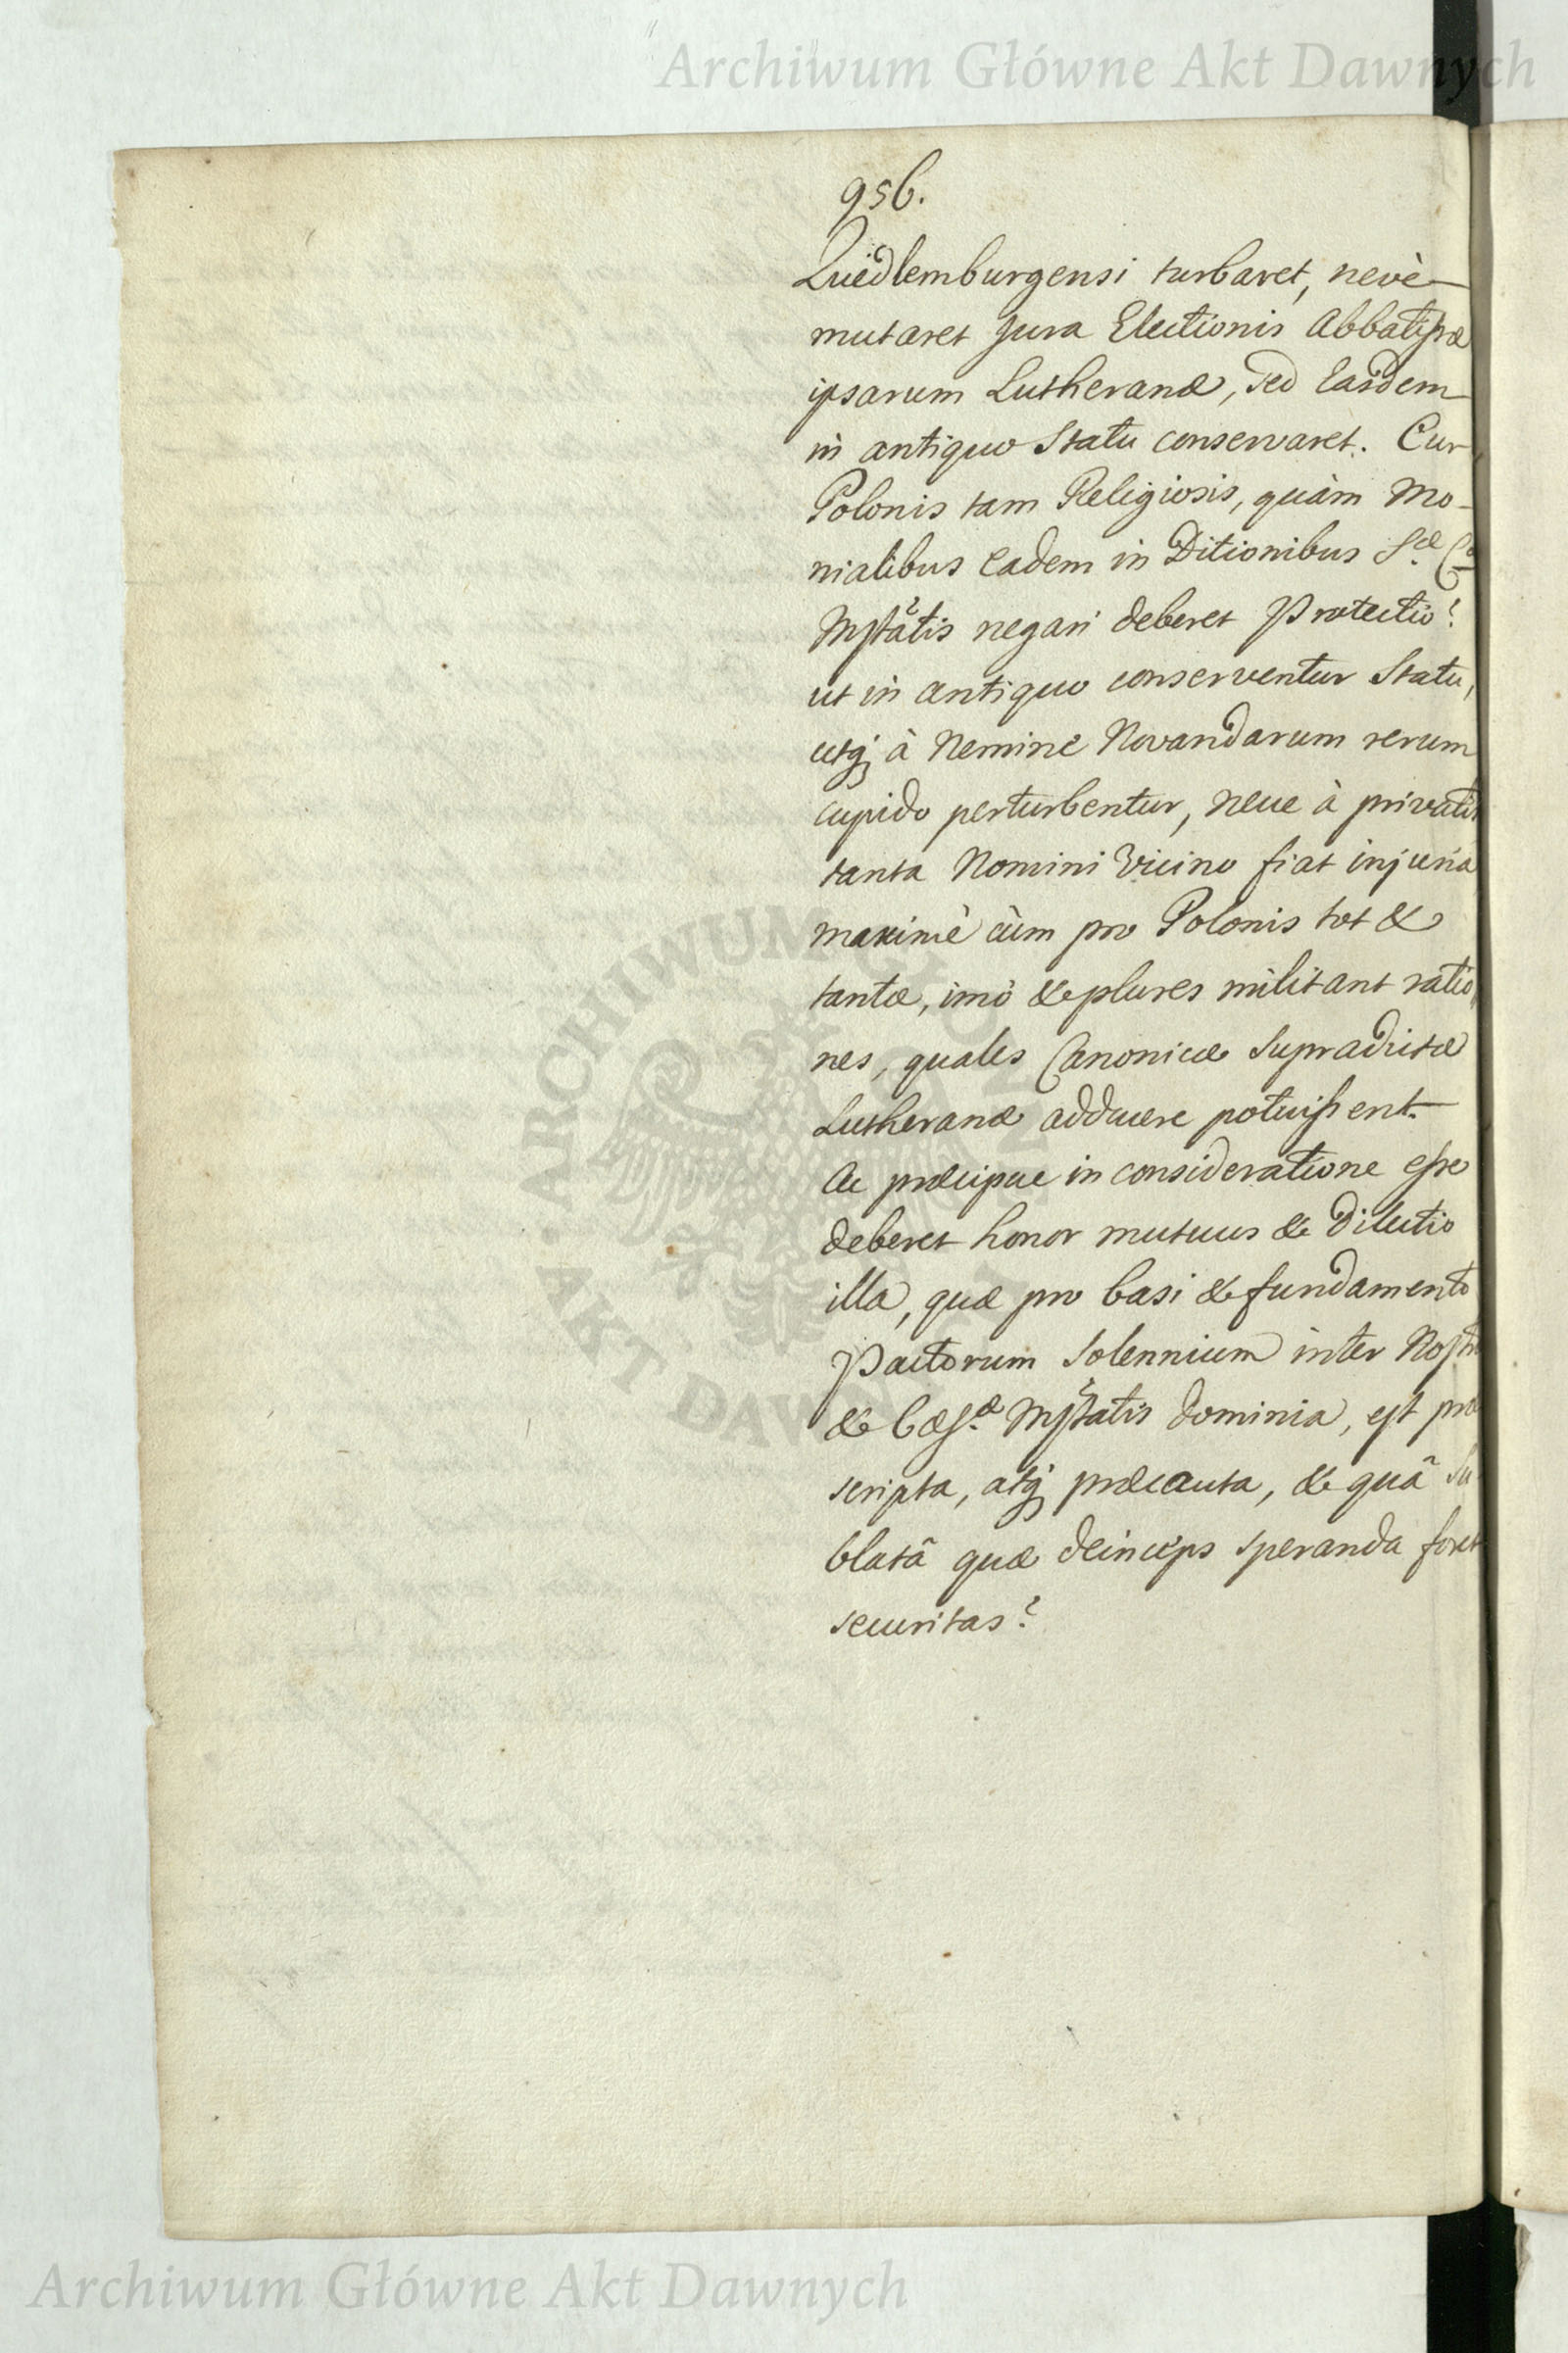 Archiwum Główne Akt Dawnych
956.
Quedlemburgensi turbaret, nevè
mutaret Jura Electionis Abbatissæ
ipsarum Lutheranæ, sed Easdem
in antiquo Statu conservaret. Cur
Polonis tam Religiosis, quàm Mo-
nialibus eadem in Ditionibus S.æ
Mstatis negari deberet Protectio?
ut in antiquo conserventur Statu,
utq; à Nemine Novandarum rerum
cupido perturbentur, neue à privatis
tanta Nomini Vicino fiat injuria
maximè cùm pro Polonis tot &
tantæ, imò & plures militant ratio
nes, quales Canonicæ Supradictæ
Lutheranæ adducere potuissent.
Ac præcipue in consideratione esse
deberet honor mutuus & Dilectio
illa, quæ pro basi & fundamento
Pactorum Solennium inter Nostr
& Cæs.æ Mstatis dominia, est præ
scripta, atq; præcauta, & quâ su
blatâ quæ deinceps speranda foret
securitas?
ARCHIWUM GŁÓWNE
AKT DAWNYCH
Archiwum Główne Akt Dawnych